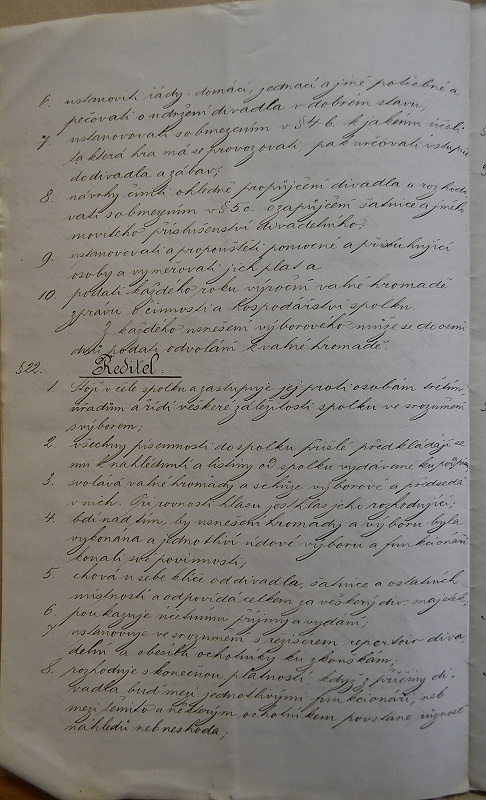 6. ustanoviti řády domácí, jednací a jiné potřebné a
pečovati o udržení divadla v dobrém stavu;
7. ustanovovati s obmezením v § 4 b. k jakému účeli
ta která hra má se provozovati, pak určovati vstupné
do divadla a zábav;
8. návrhy činiti ohledně propůjčení divadla a rozhodo
vati s obmezením v § 5 c. o zapůjčení šatnice a jiného
movitého příslušenství divadelního;
9. ustanovovati a propouštěti pomocné a přisluhující
osoby a vyměřovati jich plat a
10. podati každého roku výroční valné hromadě
zprávu o činnosti a hospodářství spolku.
Z každého usnešení výborového může se do osmi
dnů podati odvolání k valné hromadě.
§ 22. Ředitel.
1. Stojí v čele spolku a zastupuje jej proti osobám třetím,
úřadům a řídí veškeré záležitosti spolku ve srozumění
s výborem;
2. všechny písemnosti do spolku přišlé předkládají se
mu k nahlédnutí a listiny od spolku vydávané ku podpisu
3. svolává valné hromady a schůze výborové a předsedá
v nich. Při rovnosti hlasů jest hlas jeho rozhodující;
4. bdí nad tím, by usnešení hromady a výboru byla
vykonána a jednotliví údové výboru a funkcionáři
konali své povinnosti;
5. chová u sebe klíče od divadla, šatnice a ostatních
místností a odpovídá celkem za veškerý div. majetek;
6. poukazuje účetnímu příjmy a vydání;
7. ustanovuje ve srozumění s režiserem repertoir diva
delní a obesílá ochotníky ku zkouškám;
8. rozhoduje s konečnou platností, když z příčiny di-
vadla buď mezi jednotlivými funkcionáři, neb
mezi těmito a některým ochotníkem povstane různost
náhledů neb neshoda;